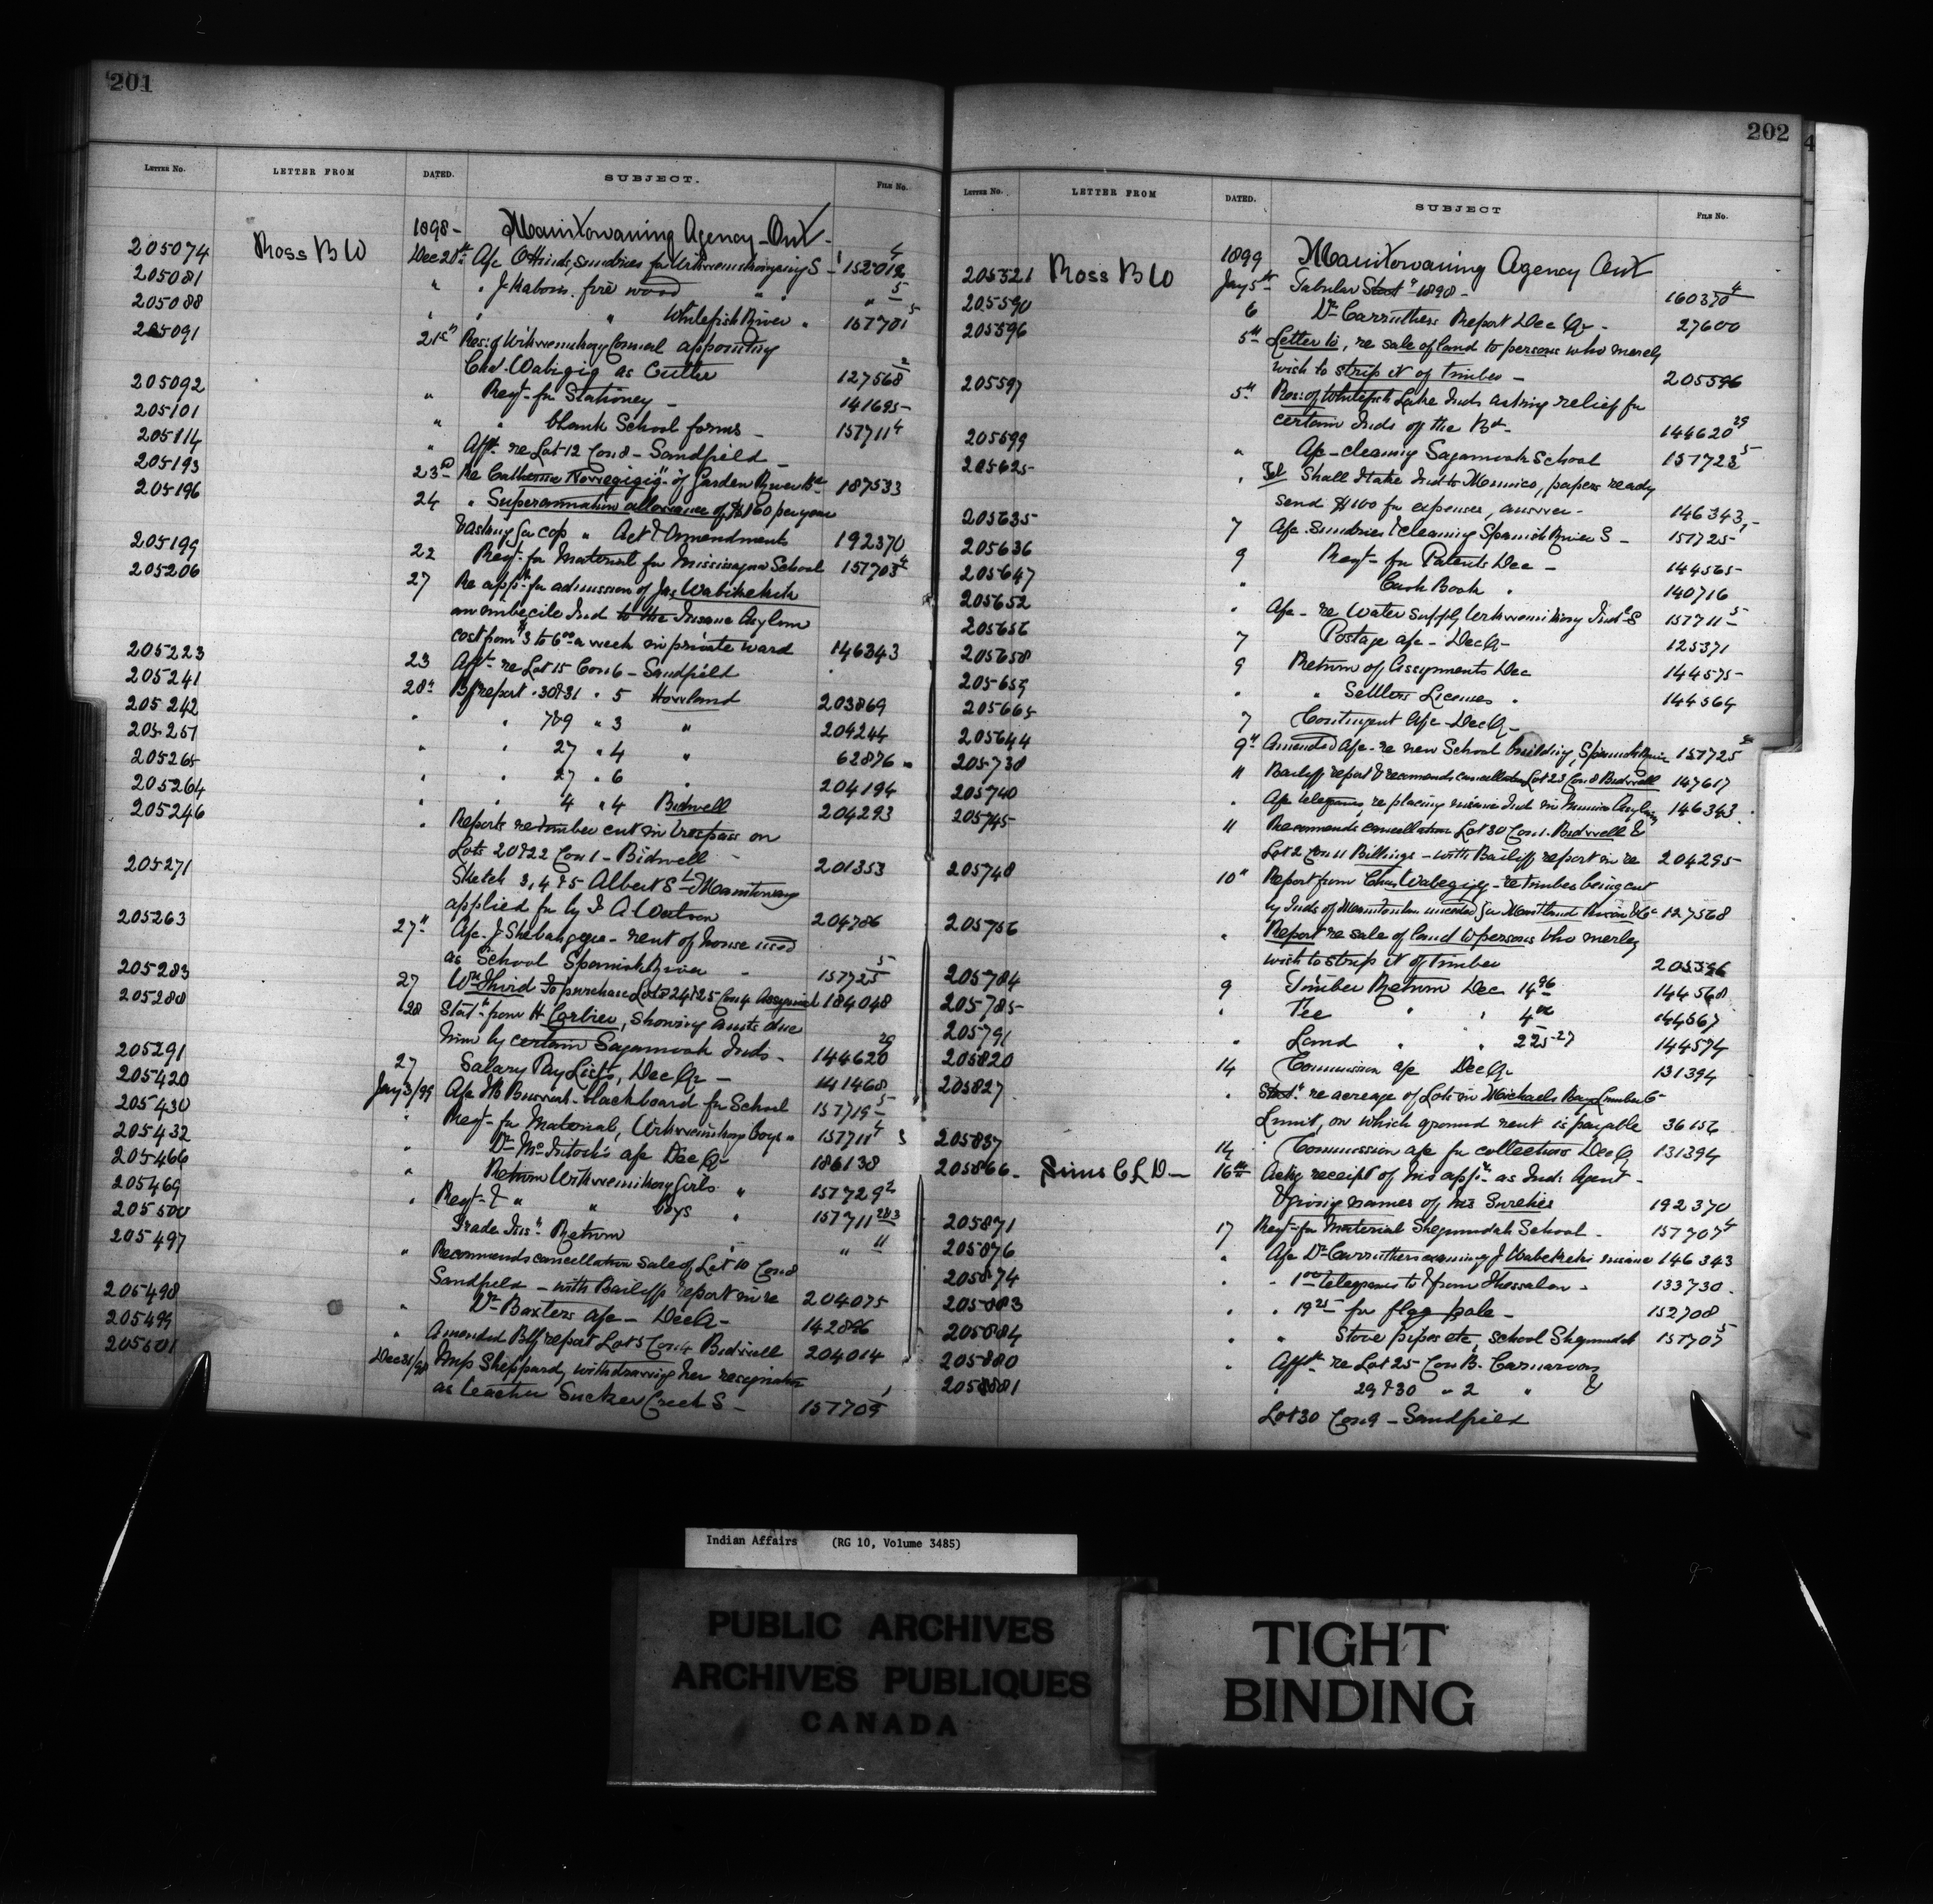 201
LETTER NO. LETTER FROM DATED. SUBJECT. FILE No.
1898- Manitowaning Agency-Ont-
205074 Ross B W Dec 20th A/c O Hinds, sundries for S 152012 4
205081 " " J fire wood " " " 5
205088 " " " Whitefish River " 157701 5
205091 21st Res: of Wikwemikong Council appointing
Chs. Wabigig as Cutter 127568 2
205092 " Reqt- for Stationery - 141695-
205101 " " blank School forms - 157711 4
205114 " Afft re Lot 12 Con 8 - Sandfield -
205193 23rd Re Catherine of Garden River Bd- 187533
205196 24 " Superannuation allowance of $160 per year
& asking for cop " Act & Amendments 192370
205199 22 Reqt- for Material for Missisagua School 157703 4
205206 27 Re appn for admission of Jas Wabikekek
an imbecile Ind to the Insane Asylum
cost from $3 to 6 00 a week in private ward 146343
205223 23 Afft- re Lot 15 Con 6 - Sandfield "
205241 28th Bff report " 30&31 " 5 Howland 203869
205242 " " 7&9 " 3 " 204244
205251 " " 27 " 4 " 62876
205265 " " 27 " 6 " 204194
205264 " " 4 " 4 Bidwell 204293
205246 " Reports re timber cut in trespass on
Lots 20&22 Con 1 - Bidwell - 201353
205271 Sketch 3, 4 & 5 Albert St Manitowaning
applied for by A. Watson 204786
205263 27th A/c. J. - rent of house used
as School Spanish River - 157725 5
205283 27 Wm Third to purchase Lots 24&25 Con 4 Assiginack 184048
205288 28 Statt from H Corbier, showing amts due
him by certain Sagamook Inds - 144620 29
205291 27 Salary Pay Lists, Dec Qr - 141468
205420 Jany 3/99 A/c H B - blackboard for School 157719 5
205430 " Reqt- for Material, Wikwemikong Boys " 157711 4
205432 " Dr McIntosh's a/c Dec Qr 186138
205466 " Return Wikwemikong Girls " 157729 2
205469 " Reqt- & " " Boys " 157711 2&3
205500 Trade Return " " 11
205497 " Recommends cancellation sale of Lot 10 Con 8
Sandfield - with Bailiff's report in re 204075
205498 " Dr Baxters a/c - Dec Qr- 142896
205499 " Amended Bff report Lot 5 Con 4 Bidwell 204014
205501 Dec 31/98 Miss Sheppard, withdrawing her resignation
as teacher Sucker Creek S - 157709 1
202
LETTER NO. LETTER FROM DATED. SUBJECT FILE No.
1899 Manitowaning Agency Ont
205521 Ross B W Jany 5th Tabular Statt 1898 - 160370 4
205590 6 Dr Carruthers Report Dec Qr - 27600
205596 5th Letter to, re sale of land to persons who merely
wish to strip it of timber - 205596
205597 5th Res: of Whitefish Lake Inds asking relief for
certain Inds of the Bd- 144620 29
205599 " A/c - cleaning Sagamook School 157723 5
205625- " Tel Shall I take Ind to Mimico, papers ready
send $100 for expenses, answer - 146343
205635- 7 A/c - sundries & cleaning Spanish River S - 157725-
205636 9 Reqt- for Patents Dec - 144565-
205647 " Cash Book " 140716
205652 " A/c - re Water supply Wikwemikong Indl S 157711 5
205656 7 Postage a/c - Dec Qr- 125371
205658 9 Return of Assignments Dec 144575-
205659 " " Settlers Licenses " 144564
205665 7 Contingent A/c - Dec Q-
205644 9th Amended A/c - re new School building, Spanish River 157725
205738 11 Bailiff report & recommends cancellation Lot 23 Con 8 Bidwell 147617
205740 " A/c telegrams re placing insane Ind in Mimico Asylum 146343
205745- 11 Recommends cancellation Lot 30 Con 1. Bidwell &
Lot 2 Con 11 Billings - with Bailiff report in re 204295-
205748 10th Report from Chas Wabegijig - re timber being cut
by Inds of Manitoulin unceded for Maitland River Co- 127568
205756 " Report re sale of land to persons who merley
wish to strip it of timber 205596
205784 9 Timber Return Dec 14 96 144568
205785- " Fee " " 4 00 144567
205791 " Land " " 225-27 144574
205820 14 Commission a/c Dec Q- 131394
205827 " Statt re acreage of Lots in Michaels Bay Lumber Co-
Limit, on which ground rent is payable 36156
205837 14 Commission a/c for collections Dec Q 131394
205866- Sims C L D- 16th Ackg receipt of his appt- as Ind: Agent -
& giving names of his Sureties 192370
205871 17 Reqt- for Material Shegunudah School - 157707 4
205876 " A/c Dr Carruthers examining J Wabekeke insane 146343
205874 " " 1 00 telegrams to & from Thessalon - 133730
205883 " " 19 25 for flag pole - 152708
205884 " " Stove pipes etc, school Shegunudah 157707 5
205880 " Afft re Lot 25 Con B. Carnarvon
205881 " 29&30 " 2 " &
Lot 30 Con 9 - Sandfield
Indian Affairs (RG 10, Volume 3485)
PUBLIC ARCHIVES
ARCHIVES PUBLIQUES
CANADA
TIGHT
BINDING